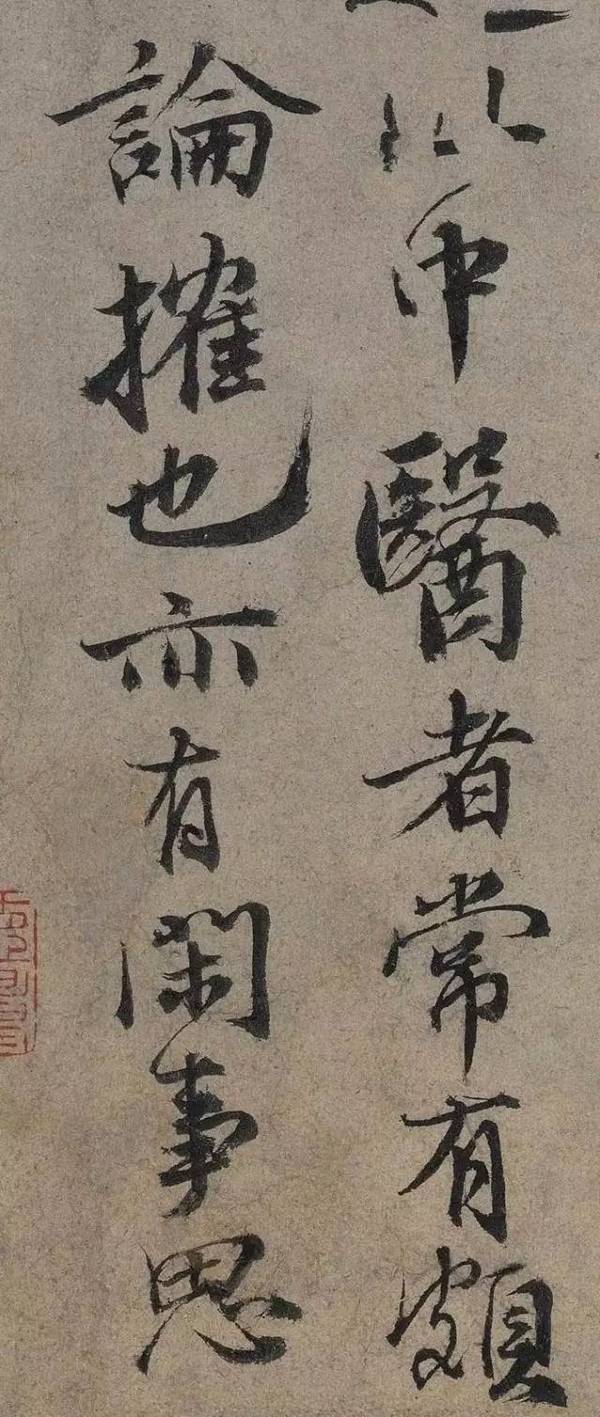 以中醫者常有頗
論搉也亦有閑事思